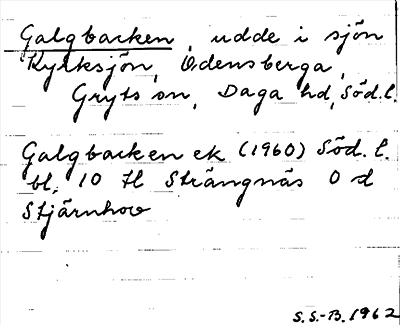 Galgbacken, udde i sjön
Kyrksjön, Ödensberga,
Gryts sn, Daga hd, Söd.l.
Galgbacken ek (1960) Söd.l.
bl. 10 H Strängnäs O d
Stjärnhov
S.S.-B. 1962